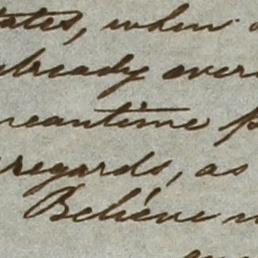 tates, when
already over
meantime
regards, as
Believe